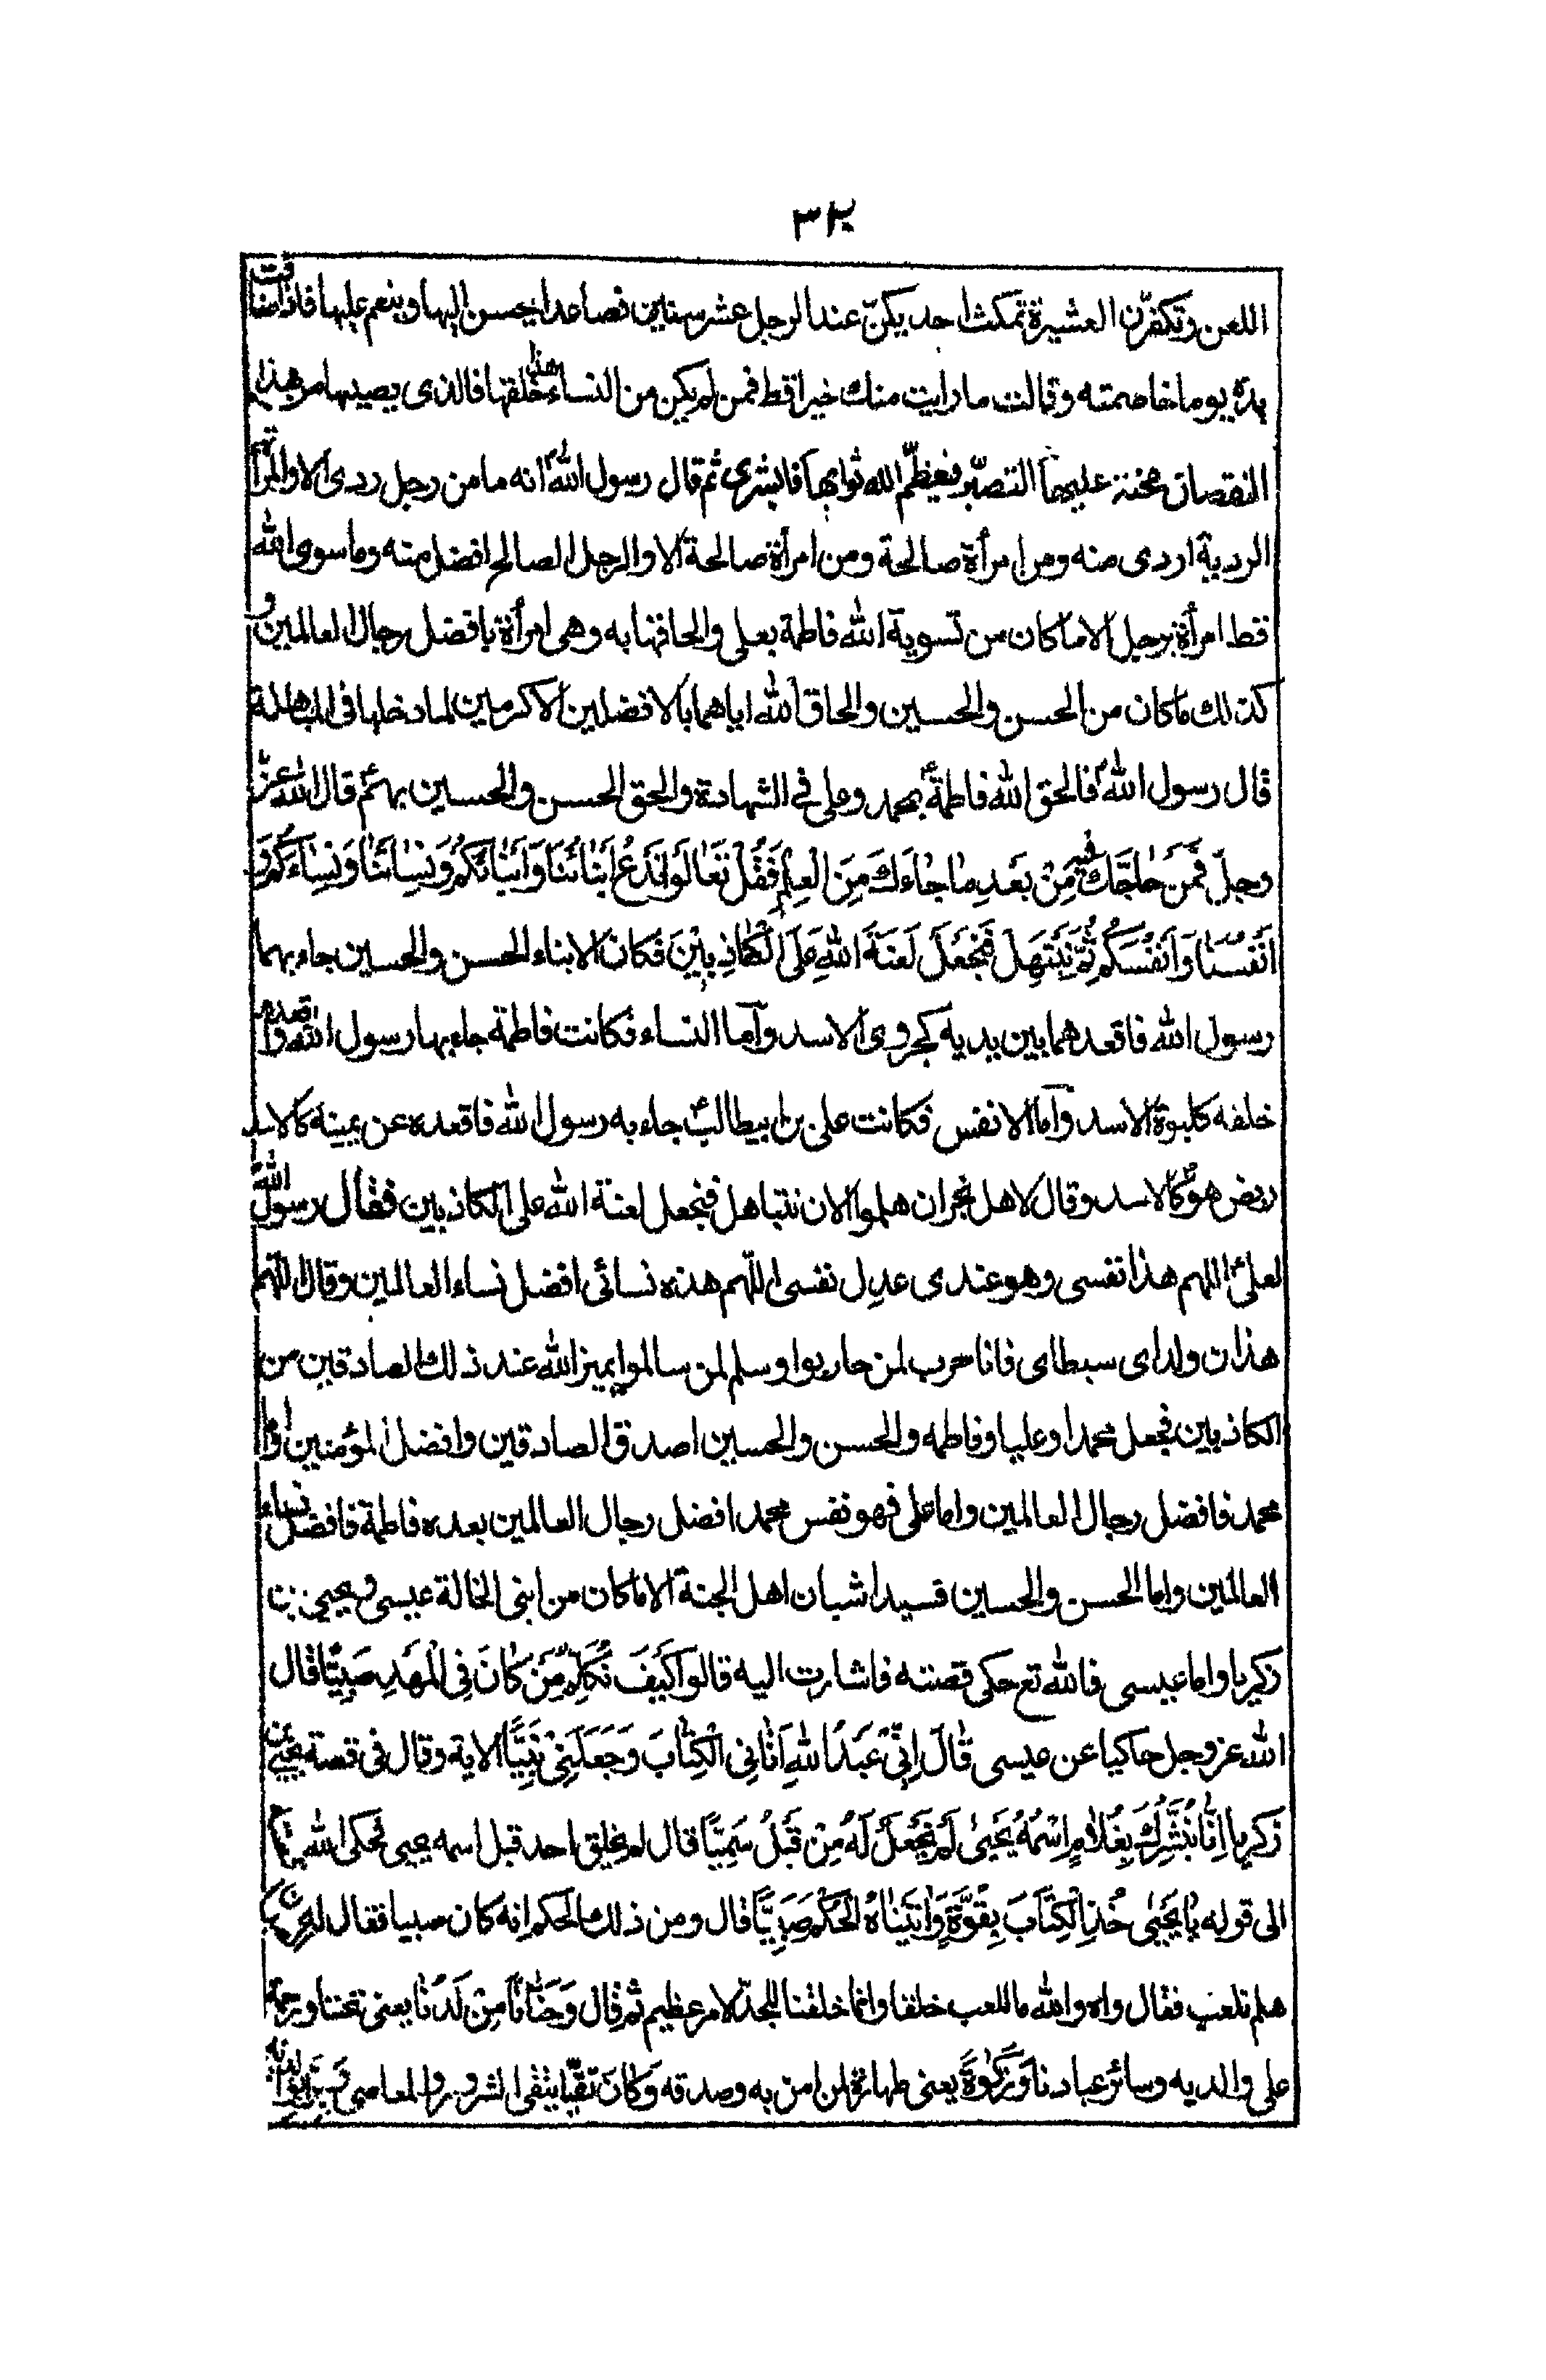 اللعن وتكفرّن العشيرة تمكث احديكنّ عند الرجل عشر سنين فصاعدا يحسن اليها وينعم عليها فاذا ضاقت
يده يوما خاصمته وقالت ما رايت منك خيرا قط فمن لم يكن من النساء هذا خلقها فالذى يصيبها من هذا
النقصان محنة عليها لتصبّر فيعظّم الله ثوابها فابشرى ثم قال رسول الله انه ما من رجل ردى الا والمرأة
الردية اردى منه ومن امرأة صالحة ومن امرأة صالحة الا والرجل الصالح افضل منه وما سوى الله
قط امرأة برجل الا ما كان من تسوية الله فاطمة بعلى والحاقها به وهى امرأة بافضل رجال العالمين و
كذلك ما كان من الحسن والحسين والحاق الله اياهما بالافضلين الاكرمين لما دخلها فى المباهلة
قال رسول الله فالحق الله فاطمة بمحمد وعلى فى الشهادة والحق الحسن والحسين بهم قال الله عزّ
وجلّ فَمَنْ حٰاجَّكَ فيه مِنْ بَعْدِ مٰا جٰاءَكَ مِنَ الْعِلْمِ فَقُلْ تَعٰالَوْا نَدْعُ اَبْنٰائَنٰا وَاَبْنٰائَكُمْ وَنِسٰائَنٰا وَنِسٰاءَكُمْ وَ
اَنْفُسَنٰا وَاَنْفُسَكُمْ ثُمَّ نَبْتَهِلْ فَنَجْعَلْ لَعْنَةَ اللهِ عَلَى الْكٰاذِبِيْنَ فكان الابناء الحسن والحسين جاء بهما
رسول الله فاقعدهما بين يديه كجروى الاسد وامّا النساء فكانت فاطمة جاء بها رسول الله واقعدها
خلفه كلبوة الاسد وامّا الانفس فكانت على بن ابيطالب جاء به رسول الله فاقعده عن يمينه كالاسد
ربض هو كالاسد وقال لاهل نجران هلموا الان نتباهل فنجعل لعنة الله على الكاذبين فقال رسول الله
لعلى اللهم هذا نفسى وهو عندى عدل نفسى اللّهم هذه نسائى افضل نساء العالمين وقال اللّهم
هذان ولداى سبطاى فانا حرب لمن حاربوا وسلم لمن سالموا يميز الله عند ذلك الصادقين من
الكاذبين فجعل محمدا وعليا وفاطمه والحسن والحسين اصدق الصادقين وافضل المؤمنين اما
محمد فافضل رجال العالمين واما على فهو نفس محمد افضل رجال العالمين بعده فاطمة فافضل نساء
العالمين واما الحسن والحسين فسيدا شبان اهل الجنة الا ما كان من ابنى الخالة عيسى ويحيى بن
زكريا واما عيسى فالله تع حكى قصته فاشارت اليه قالوا كَيْفَ نُكَلِّمُ مَنْ كٰانَ فِى الْمَهْدِ صَبِيًّا قال
الله عز وجل حاكيا عن عيسى قٰالَ اِنِّىْ عَبْدُ اللهِ اٰتٰانِى الْكِتٰابَ وَجَعَلَنِىْ نَبِيًّا الاية وقال فى قصة يحيى بن
زكريا اِنّٰا نُبَشِّرُكَ بِغُلاٰمٍ اِسْمُهُ يَحْيىٰ لَمْ نَجْعَلْ لَهُ مِنْ قَبْلُ سَمِيًّا قال لم يخلق احد قبل اسمه يحيى فحكى الله
الى قوله يٰا يَحْيىٰ خُذِ الْكِتٰابَ بِقُوَّةٍ وَاٰتَيْنٰاهُ الْحُكْمَ صَبِيًّا قال ومن ذلك الحكم انه كان صبيا فقال له
هلم نلعب فقال واه والله ما للعب خلقنا وانما خلقنا للجدّ لامر عظيم ثم قال وَحَنٰانًا مِنْ لَدُنّٰا يعنى تحننا ورحمة
على والديه وسائر عبادنا وَزَكٰوةً يعنى طهارة لمن امن به وصدقه وَكٰانَ تَقِيًّا يتقى الشرور والمعاصى